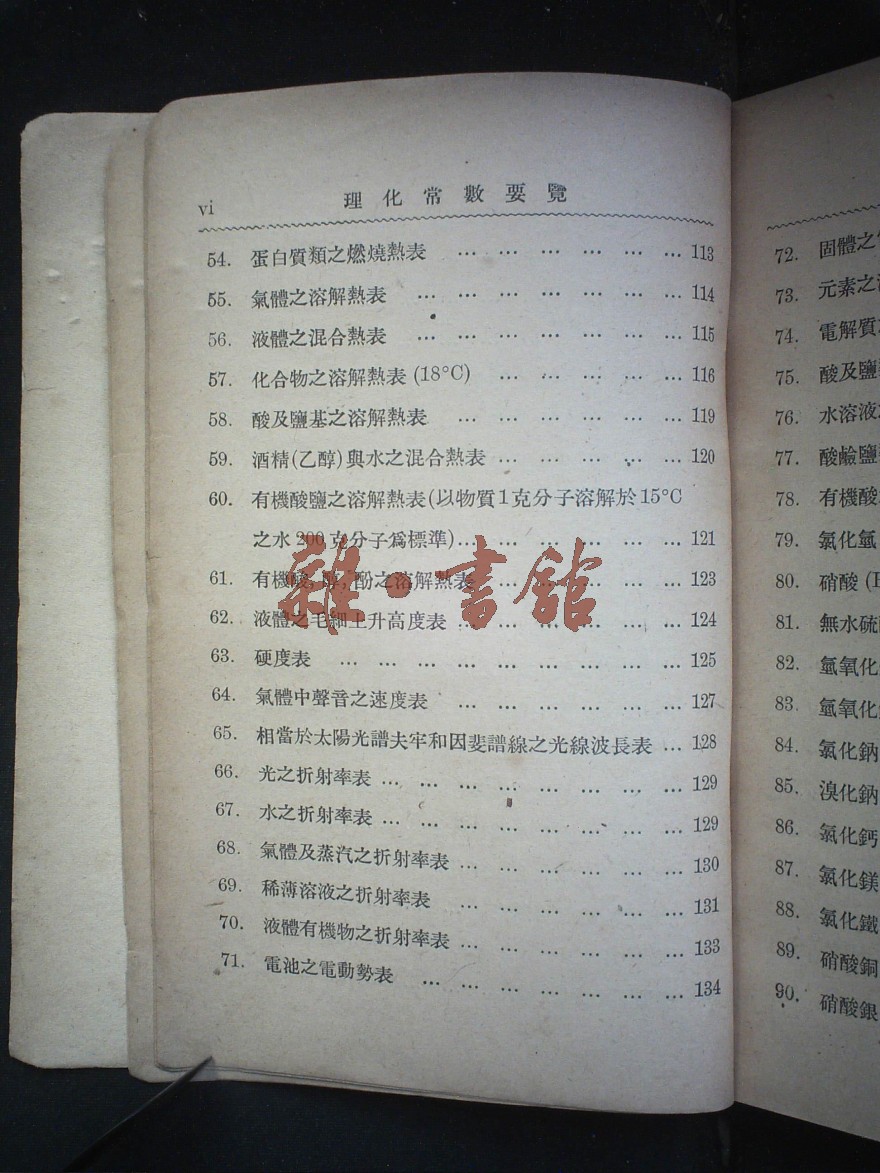 vi 理化常數要覽
54. 蛋白質類之燃燒熱表 … … … … … … 113
55. 氣體之溶解熱表 … … … … … … … 114
56. 液體之混合熱表 … … … … … … … 115
57. 化合物之溶解熱表 (18°C) … … … … … 116
58. 酸及鹽基之溶解熱表 … … … … … … 119
59. 酒精(乙醇)與水之混合熱表 … … … … … 120
60. 有機酸鹽之溶解熱表(以物質1克分子溶解於15°C
之水200克分子爲標準)… … … … … … 121
61. 有機酸,醇,酚之溶解熱表 … … … … … 123
62. 液體之毛細上升高度表 … … … … … … 124
63. 硬度表 … … … … … … … … … 125
64. 氣體中聲音之速度表 … … … … … … 127
65. 相當於太陽光譜夫牢和因斐譜線之光線波長表 … 128
66. 光之折射率表 … … … … … … … … 129
67. 水之折射率表 … … … … … … … … 129
68. 氣體及蒸汽之折射率表 … … … … … … 130
69. 稀薄溶液之折射率表 … … … … … … 131
70. 液體有機物之折射率表 … … … … … … 133
71. 電池之電動勢表 … … … … … … … 134
72. 固體之
73. 元素之
74. 電解質
75. 酸及鹽
76. 水溶液
77. 酸鹼鹽
78. 有機酸
79. 氯化氫
80. 硝酸 (
81. 無水硫
82. 氫氧化
83. 氫氧化
84. 氯化鈉
85. 溴化鈉
86. 氯化鈣
87. 氯化鎂
88. 氯化鐵
89. 硝酸銅
90. 硝酸銀
雜·書館